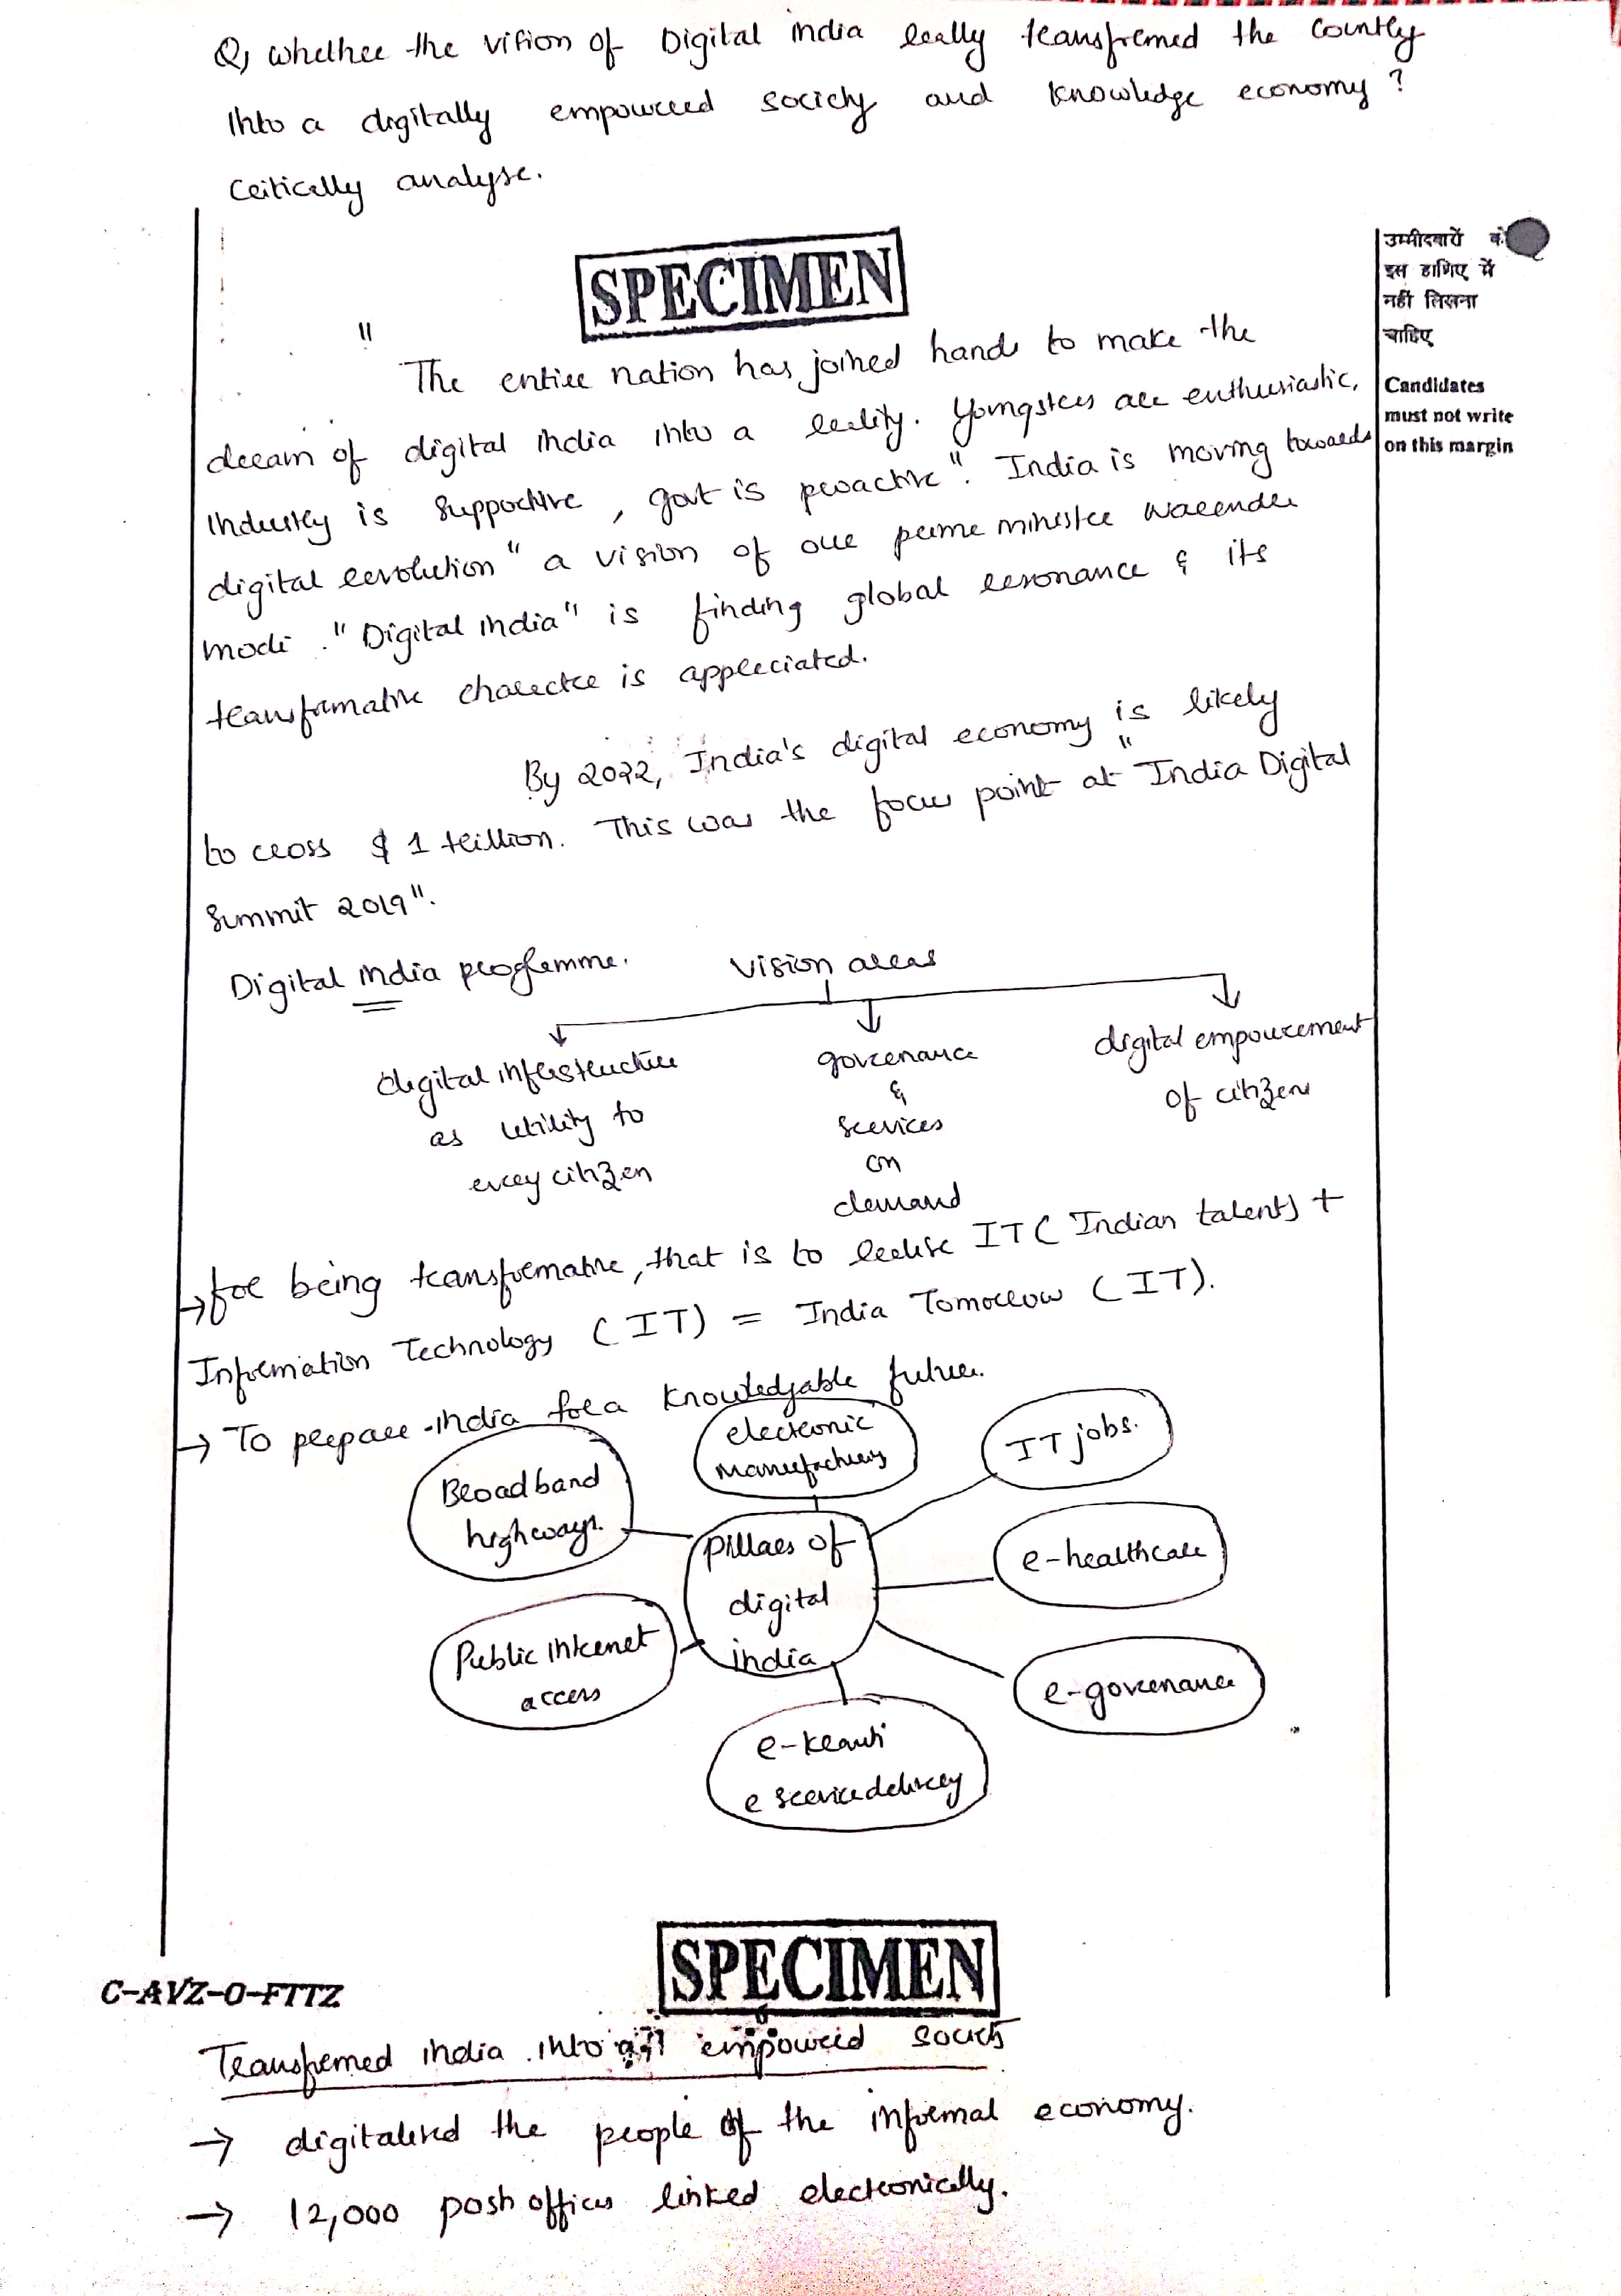 Q, Whether the vision of Digital india really transformed the country
into a digitally empowered society and knowledge economy ?
Critically analyse.
SPECIMEN
उम्मीदवारों को
इस हाशिए में
नहीं लिखना
चाहिए
Candidates
must not write
on this margin
" The entire nation has joined hands to make the
dream of digital india into a reality. Youngsters are enthusiastic,
industry is supportive, govt is proactive". India is moving towards
digital revolution " a vision of our prime minister Narender
modi ." Digital india" is finding global resonance & its
transformative charecter is appreciated.
By 2022, India's digital economy is likely
to cross $ 1 trillion. This was the focus point at "India Digital
Summit 2019".
Digital india programme. Vision areas
digital infrastructure
as utility to
every citizen
governance
&
services
on
demand
digital empowerment
of citizens
→ for being transformative, that is to realise IT ( Indian talent) +
Information Technology (IT) = India Tomorrow (IT).
→ To prepare india for a knowledgable future.
Broadband
highways.
electronic
manufacturing
IT jobs.
pillars of
digital
india
e-healthcare
Public internet
access
e-governance
e-kranti
e service delivery
SPECIMEN
C-AVZ-O-FTTZ
Transformed india into empowered society
→ digitalised the people of the informal economy.
→ 12,000 post offices linked electronically.